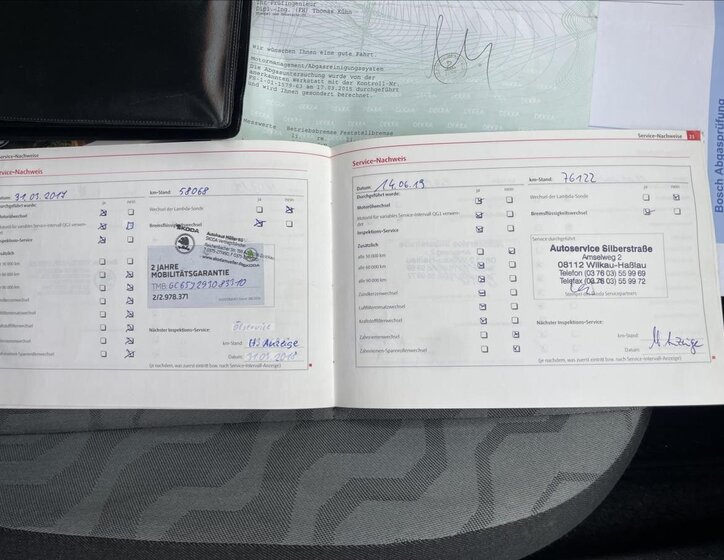 Ihr Prüfingenieur
Dipl.-Ing. (FH) Thomas Kühn
wir wünschen Ihnen eine gute Fahrt.
Motormanagement/Abgasreinigungssystem
Die Abgasuntersuchung wurde von der
anerkannten Werkstatt mit der Kontroll-Nr.
am 17.03.2015 durchgeführt
und wird Ihnen gesondert berechnet.
Messwerte Betriebsbremse Feststellbremse
DEKRA
Bosch Abgasprüfung
Service-Nachweise
Service-Nachweis
Datum: 31.03.2017
km-Stand: 58068
Durchgeführt wurde:
ja nein
Motorölwechsel
Motoröl für variables Service-Intervall QG1 verwen-
det
Inspektions-Service
Zusätzlich
Zündkerzenwechsel
Luftfiltereinsatzwechsel
Kraftstofffilterwechsel
Zahnriemenwechsel
Zahnriemen-Spannrollenwechsel
ja nein
Wechsel der Lambda-Sonde
Bremsflüssigkeitswechsel
SKODA
Autohaus Müller KG
2 JAHRE
MOBILITÄTSGARANTIE
TMB:
2/2.978.371
Nächster Inspektions-Service:
Ölservice
km-Stand: lt. Anzeige
Datum: 31.03.2018
(je nachdem, was zuerst eintritt bzw. nach Service-Intervall-Anzeige)
Service-Nachweise 21
Service-Nachweis
Datum: 14.06.19
km-Stand: 76122
Durchgeführt wurde:
ja nein
Motorölwechsel
Motoröl für variables Service-Intervall QG1 verwen-
det
Inspektions-Service
Zusätzlich
alle 30 000 km
alle 60 000 km
alle 60 000 km
alle 90 000 km
Zündkerzenwechsel
Luftfiltereinsatzwechsel
Kraftstofffilterwechsel
Zahnriemenwechsel
Zahnriemen-Spannrollenwechsel
ja nein
Wechsel der Lambda-Sonde
Bremsflüssigkeitswechsel
Service durchgeführt:
Autoservice Silberstraße
Amselweg 2
08112 Wilkau-Haßlau
Telefon (03 76 03) 55 99 69
Telefax (03 76 03) 55 99 72
Stempel des Skoda Servicepartners
Nächster Inspektions-Service:
km-Stand:
Datum: lt. Anzeige
(je nachdem, was zuerst eintritt bzw. nach Service-Intervall-Anzeige)